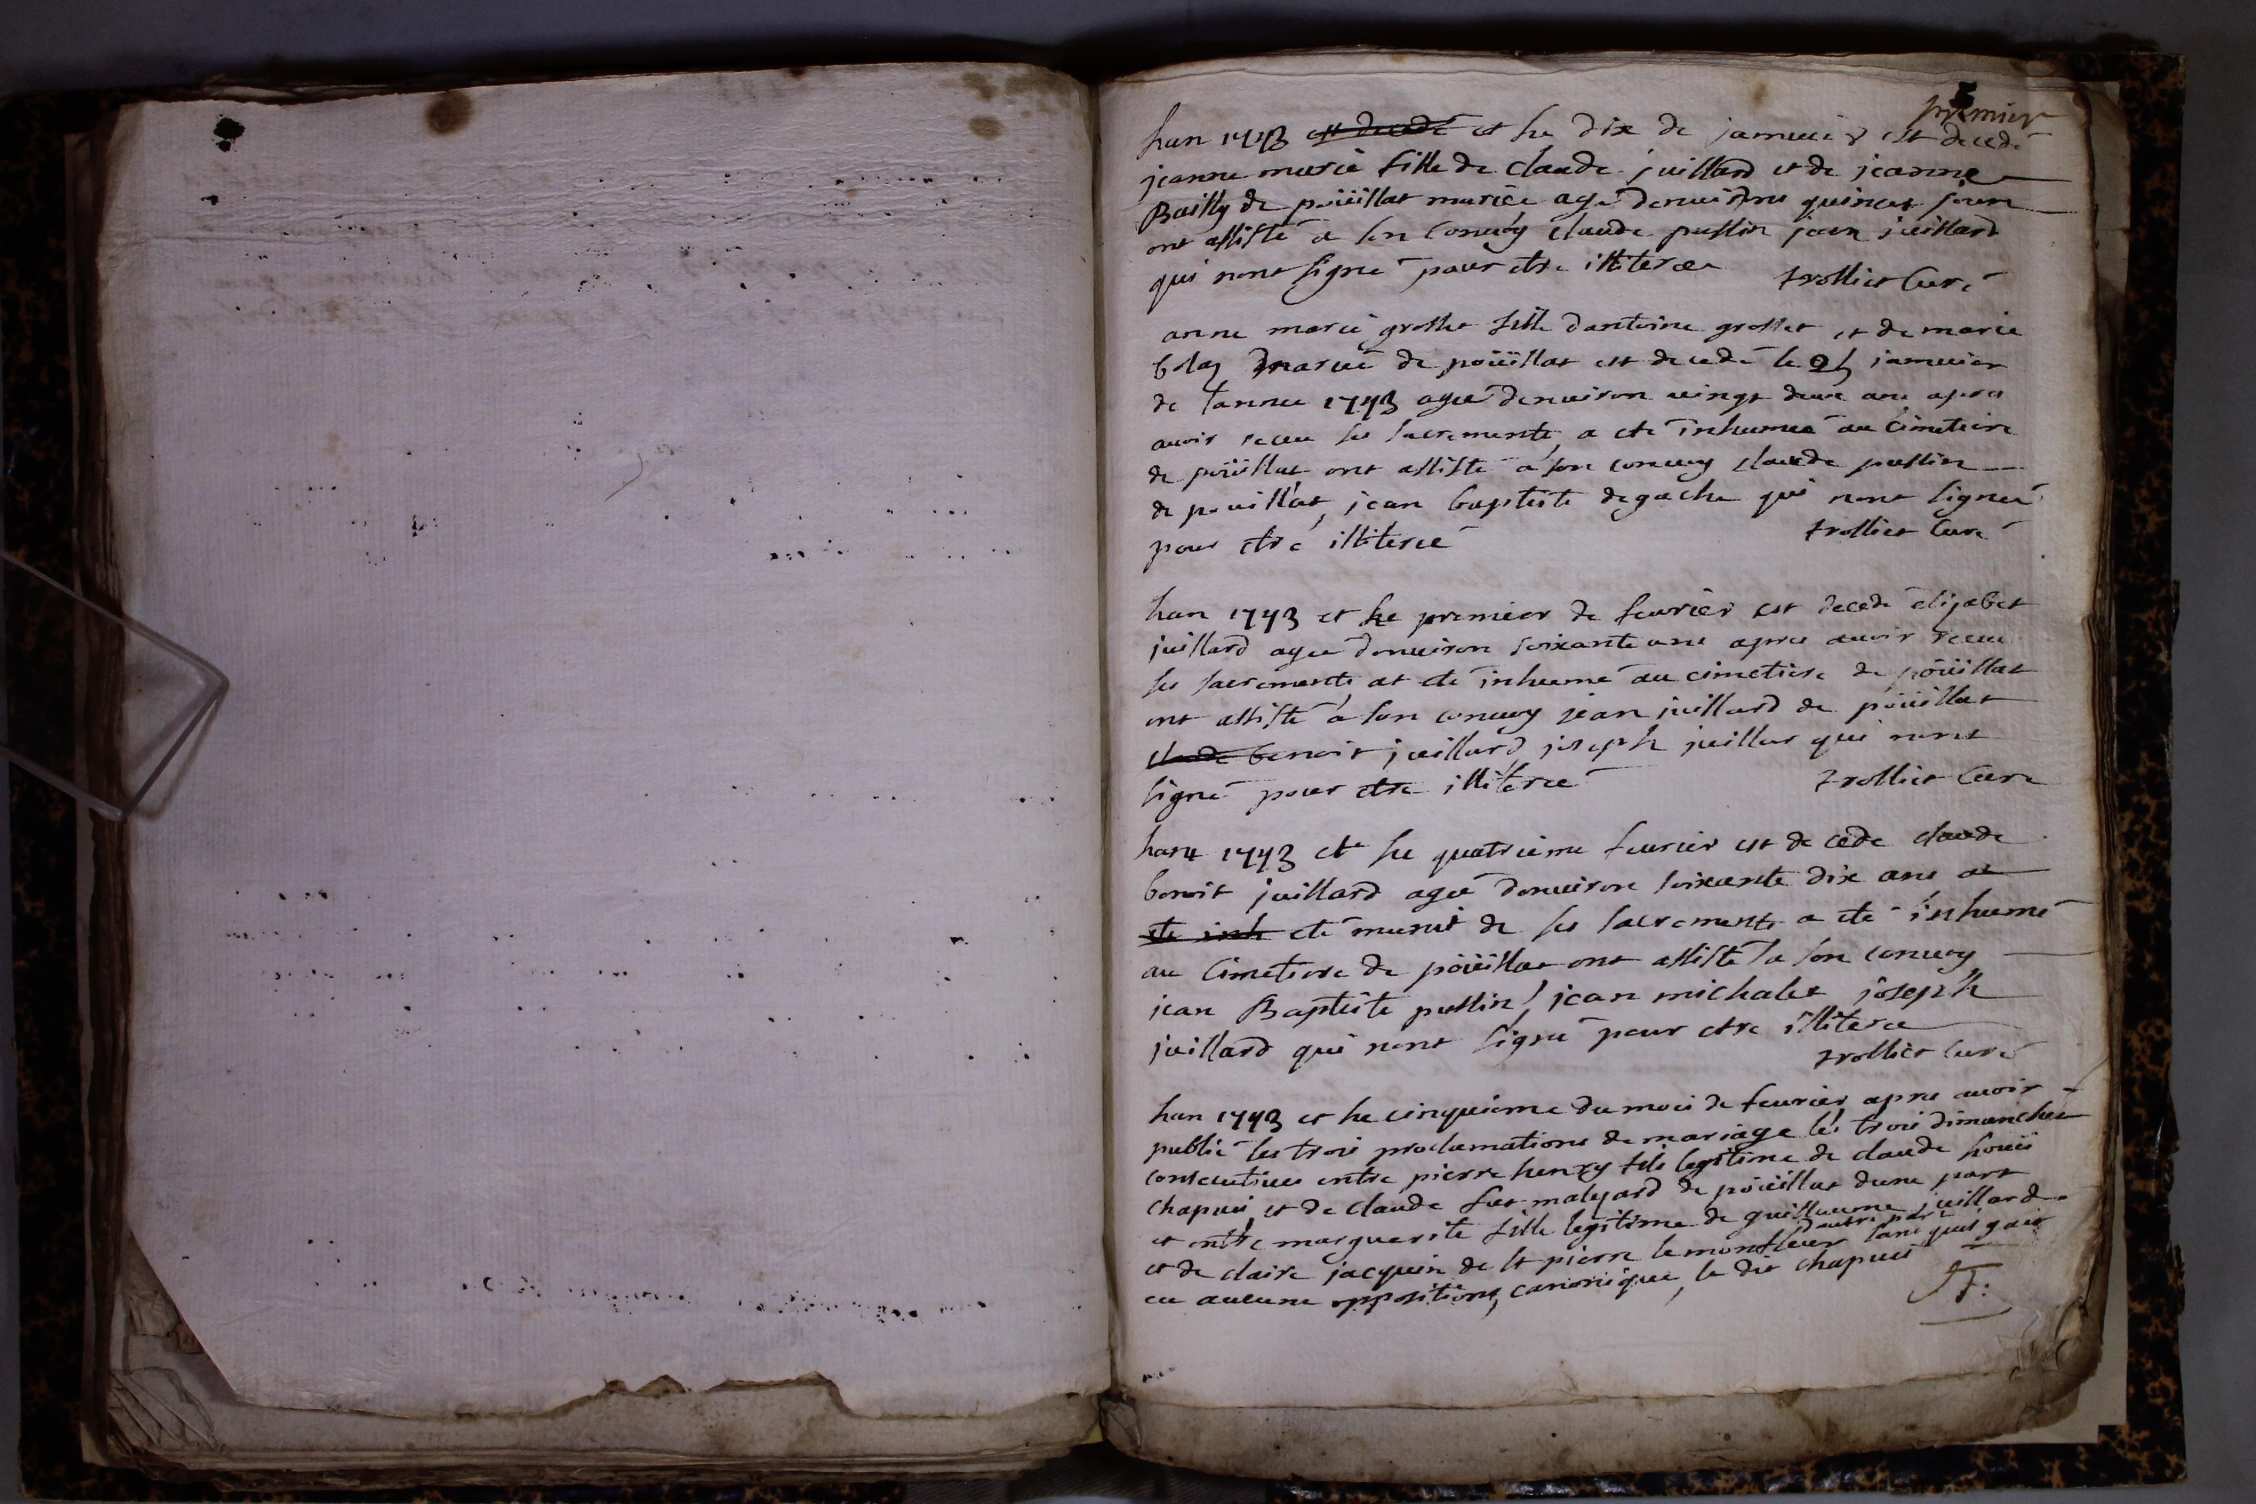 premier
han 1743 est decedé et he dix de januier est decedé
jeanne marie fille de claude juillard et de jeanne
Bailly de poüillat mariée agé denuiron quinze jours
ont assisté a son conuoy claude puslin jean juillard
qui nont signé pour etre illiteree
trolliet Curé
anne marie grosset fille dantoine grosset et de marie
de poüillat est decedé le 25 januier
de lannee 1743 agée denuiron uingt deux ans apres
auoir receu ses sacrements, a eté inhumeé au Cimetiere
de poüillat ont assisté a son conuoy claude puslin
de pouillat, jean baptiste degache qui nont signeé
pour etre illitereé
trolliet Curé
han 1743 et he premier de feurier est decedé elizabet
juillard agée denuiron soixante ans apres auoir receu
ses sacrements at eté inhumé au cimetiere de poüillat
ont assisté a son conuoy jean juillard de poüillat
claude benoit juillard, joseph juillar qui nont
signé pour etre illitereé
trolliet Cure
han 1743 et he quatrieme feurier est decede claude
benoit juillard agé denuiron soixante dix ans at
ete inh eté munit de ses sacrements a eté inhumé
au Cimetiere de poüillat ont assisté a son conuoy
jean Baptiste puslin, jean michalet joseph
juillard qui nont signé pour etre illitere
trolliet Curé
han 1743 et he cinquieme du mois de feurier apres auoir
publié les trois proclamations de mariage les trois dimanches
consecutiues entre pierre henry fils legitime de claude
chapuis et de claude malyard de poüillat dune part
et entre marguerite fille legitime de guillaume juillard
et de claire jacquin de st pierre dautre part sans quil y ait
eu aucune oppositions, canonique, le dit chapuis